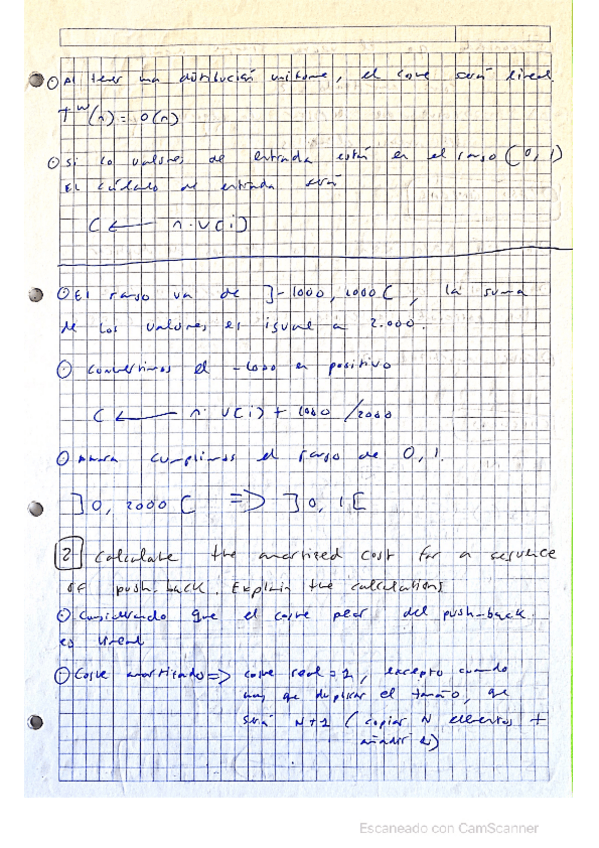 Al tener una distribución uniforme, el coste será lineal.
T^w(n) = O(n)
Si lo valores de entrada están en el rango (0, 1)
El cálculo de entrada será
C ← n·V[i]
El rango va de ]-1000, 1000[, la suma
de los valores es igual a 2.000.
Convertimos el -1000 en positivo
C ← n·V[i] + 1000 /2000
Ahora cumplimos el rango de 0, 1.
]0, 2000[ => ]0, 1[
2 Calculate the amortized cost for a sequence
of push-back. Explain the calculations
Considerando que el coste peor del push-back
es lineal
Coste amortizado => coste real = 1, excepto cuando
hay que duplicar el tamaño, que
será N+1 (copiar N elementos +
añadir 1)
Escaneado con CamScanner